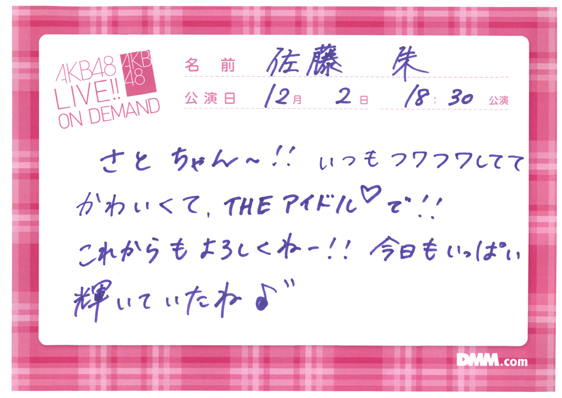 AKB48
LIVE!!
ON DEMAND
AKB
48
名前 佐藤 朱
公演日 12月 2日 18:30 公演
さとちゃん〜!! いつもフワフワしてて
かわいくて、THEアイドル♡で!!
これからもよろしくねー!! 今日もいっぱい
輝いていたね♪
DMM.com